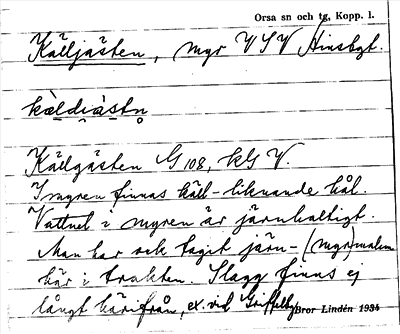 Orsa sn och tg, Kopp. l.
Källjästen, myr V S V Hinsbgt.
kældiæstn̥
Källgästen G 108, kG V.
I myren finnas käll-liknande hål.
Vattnet i myren är järnhaltigt.
Man har ock tagit järn-(myr)malm
här i trakten. Slagg finns ej
långt härifrån, ex. vid
Bror Lindén 1934